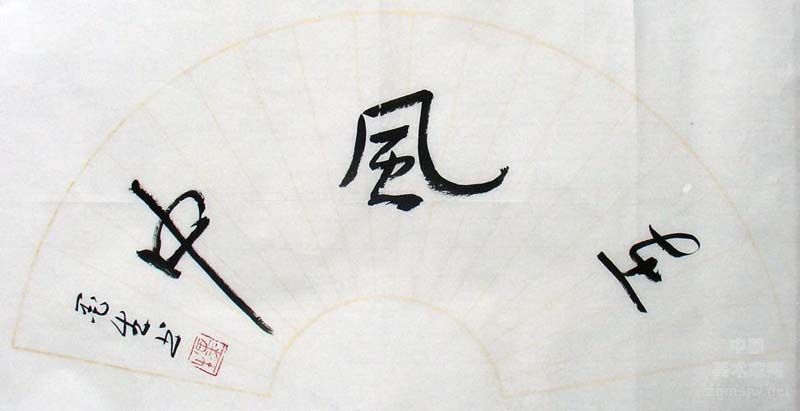 在風中
中国
美术家网
zgmsjw.net